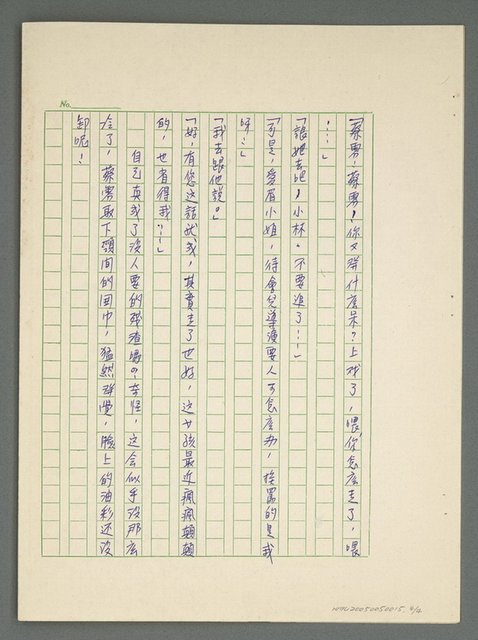 No.
「蔡男！蔡男！你又發什麼呆？上戏了，喂，你怎麼走了，喂
⋯⋯」
「讓她去吧！小林。不要追了⋯⋯」
「可是，愛眉小姐，待會兒導演要人可怎麼办，挨罵的是我
呀⋯」
「我去跟他說。」
「好，有您这話就成，其實走了也好，这女孩最近瘋瘋顛顛
的，也省得我⋯⋯」
自己真成了沒人要的残渣嗎？奇怪，这会似乎沒那麼
冷了，蔡男取下頸間的围巾，猛然發覺，臉上的油彩还沒
卸呢！